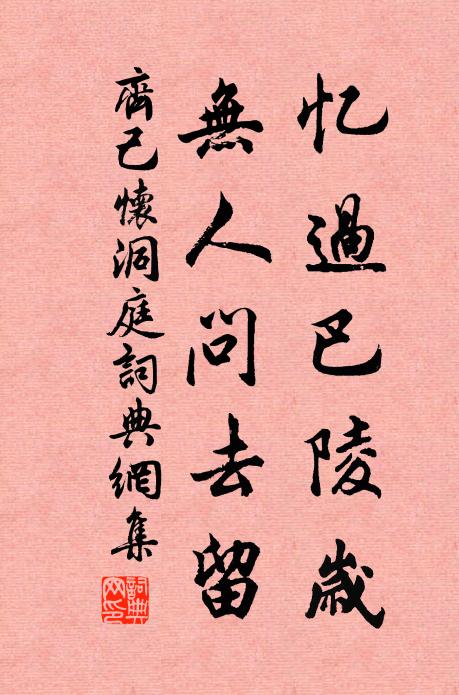 忆過巴陵歲
無人問去留
齊己懷洞庭詞典網集
詞典網印